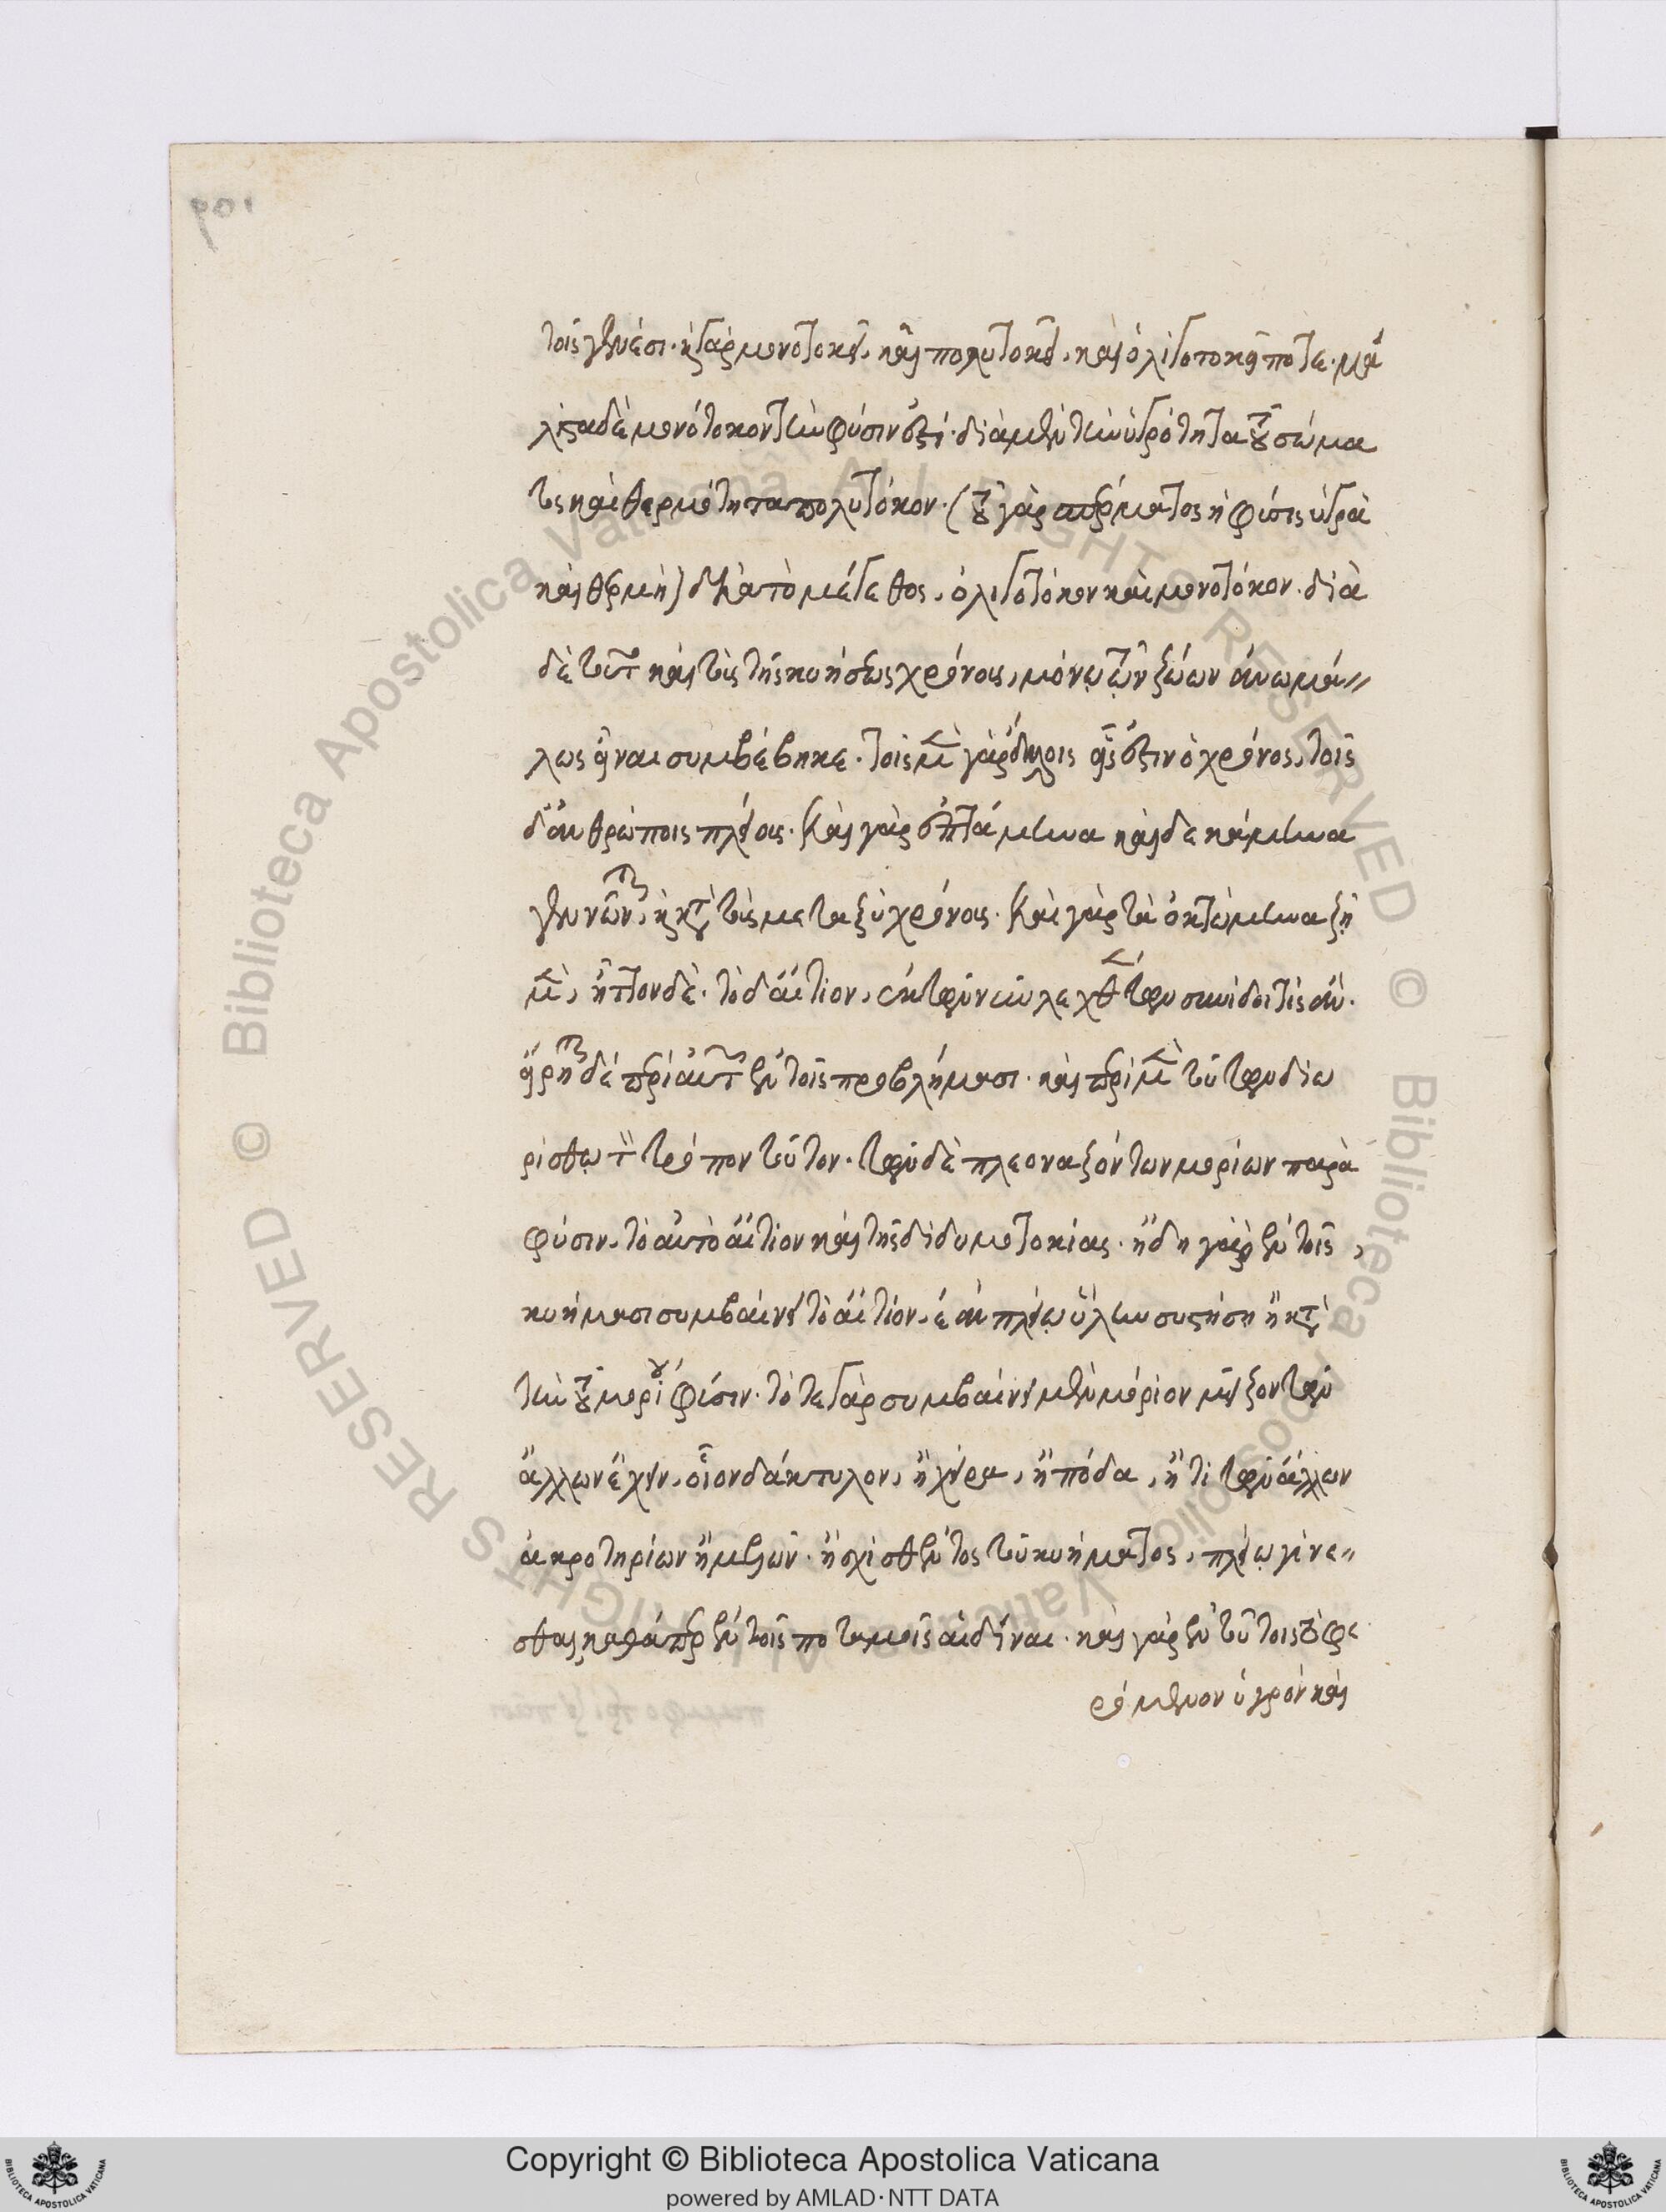 τοῖς γένεσι. καὶ γὰρ μονοτοκεῖ, καὶ πολυτοκεῖ, καὶ ὀλιγοτοκεῖ ποτε. μά
λιστα δὲ μονοτόκον τὴν φύσιν ἐστί. διὰ μὲν τὴν ὑγρότητα τοῦ σώμα
τος καὶ θερμότητα πολυτόκον. (τοῦ γὰρ σπέρματος ἡ φύσις ὑγρὰ
καὶ θερμή) διὰ τὸ μέγεθος, ὀλιγοτόκον καὶ μονοτόκον. διὰ
δὲ τοῦτο καὶ τοὺς τῆς κυήσεως χρόνους, μόνῳ τῶν ζώων ἀνωμά〃
λως εἶναι συμβέβηκε. τοῖς μὲν γὰρ ἄλλοις εἷς ἐστιν ὁ χρόνος, τοῖς
δ' ἀνθρώποις πλείους. καὶ γὰρ ἑπτάμηνα καὶ δεκάμηνα
γεννῶνται, καὶ κατὰ τοὺς μεταξὺ χρόνους. καὶ γὰρ τὰ ὀκτώμηνα ζῇ
μὲν, ἧττον δέ. τὸ δ' αἴτιον, ἐκ τῶν νῦν λεχθέντων συνίδοι τις ἄν.
εἴρηται δὲ περὶ αὐτῶν ἐν τοῖς προβλήμασι. καὶ περὶ μὲν τούτων διω
ρίσθω τὸν τρόπον τοῦτον. τῶν δὲ πλεοναζόντων μορίων παρὰ
φύσιν, τὸ αὐτὸ αἴτιον καὶ τῆς διδυμοτοκίας. ἤδη γὰρ ἐν τοῖς
κυήμασι συμβαίνει τὸ αἴτιον, ἐὰν πλείω ὕλην συστήσῃ ἢ κατὰ
τὴν τοῦ μορίου φύσιν. τότε γὰρ συμβαίνει μὲν μόριον μεῖζον τῶν
ἄλλων ἔχειν, οἷον δάκτυλον, ἢ χεῖρα, ἢ πόδα, ἤ τι τῶν ἄλλων
ἀκροτηρίων ἢ μελῶν. ἢ σχισθέντος τοῦ κυήματος, πλείω γίνε〃
σθαι, καθάπερ ἐν τοῖς ποταμοῖς αἱ δῖναι. καὶ γὰρ ἐν τούτοις τὸ φε
ρόμενον ὑγρὸν καὶ